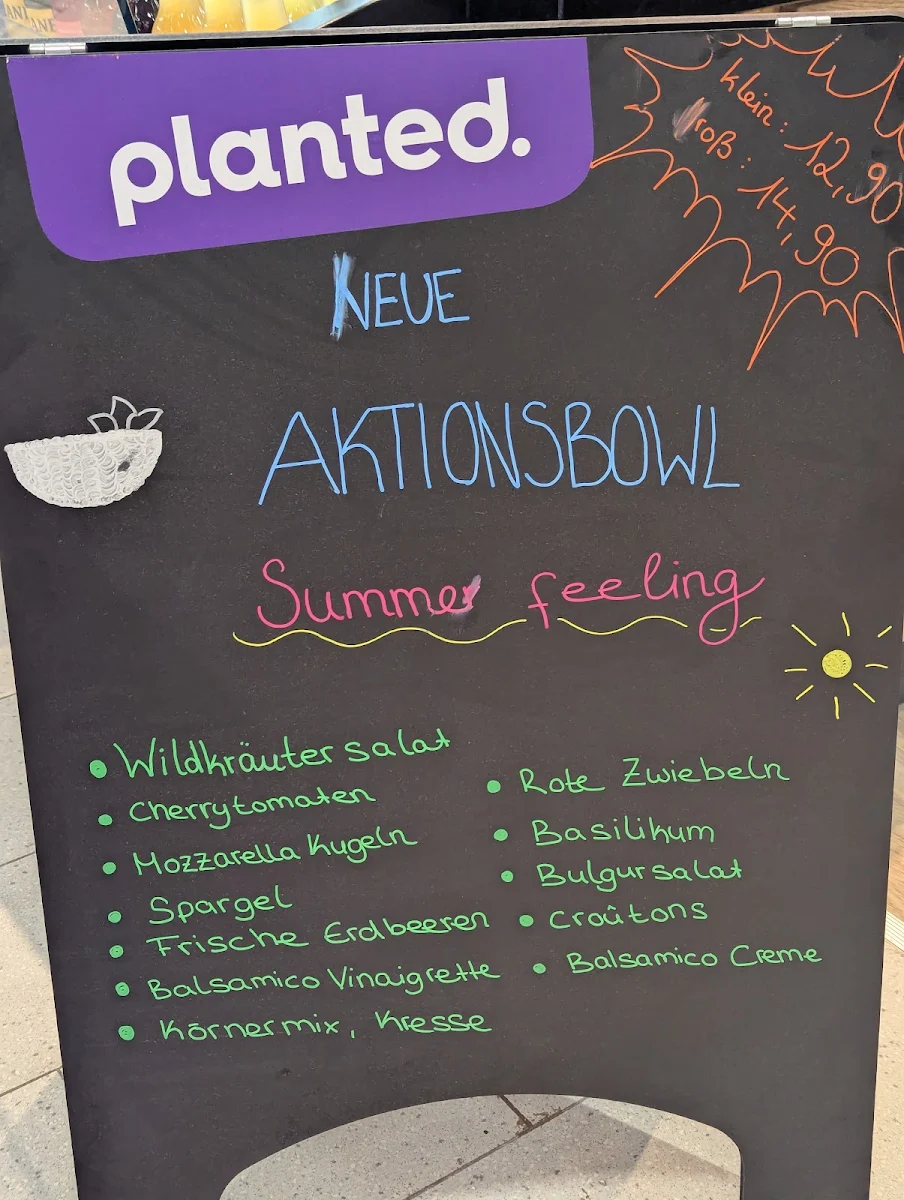 planted.
klein: 12,90
roß: 14,90
NEUE
AKTIONSBOWL
Summer feeling
• Wildkräutersalat
• Cherrytomaten
• Mozzarella Kugeln
• Spargel
• Frische Erdbeeren
• Balsamico Vinaigrette
• Körnermix, Kresse
• Rote Zwiebeln
• Basilikum
• Bulgursalat
• Croûtons
• Balsamico Creme